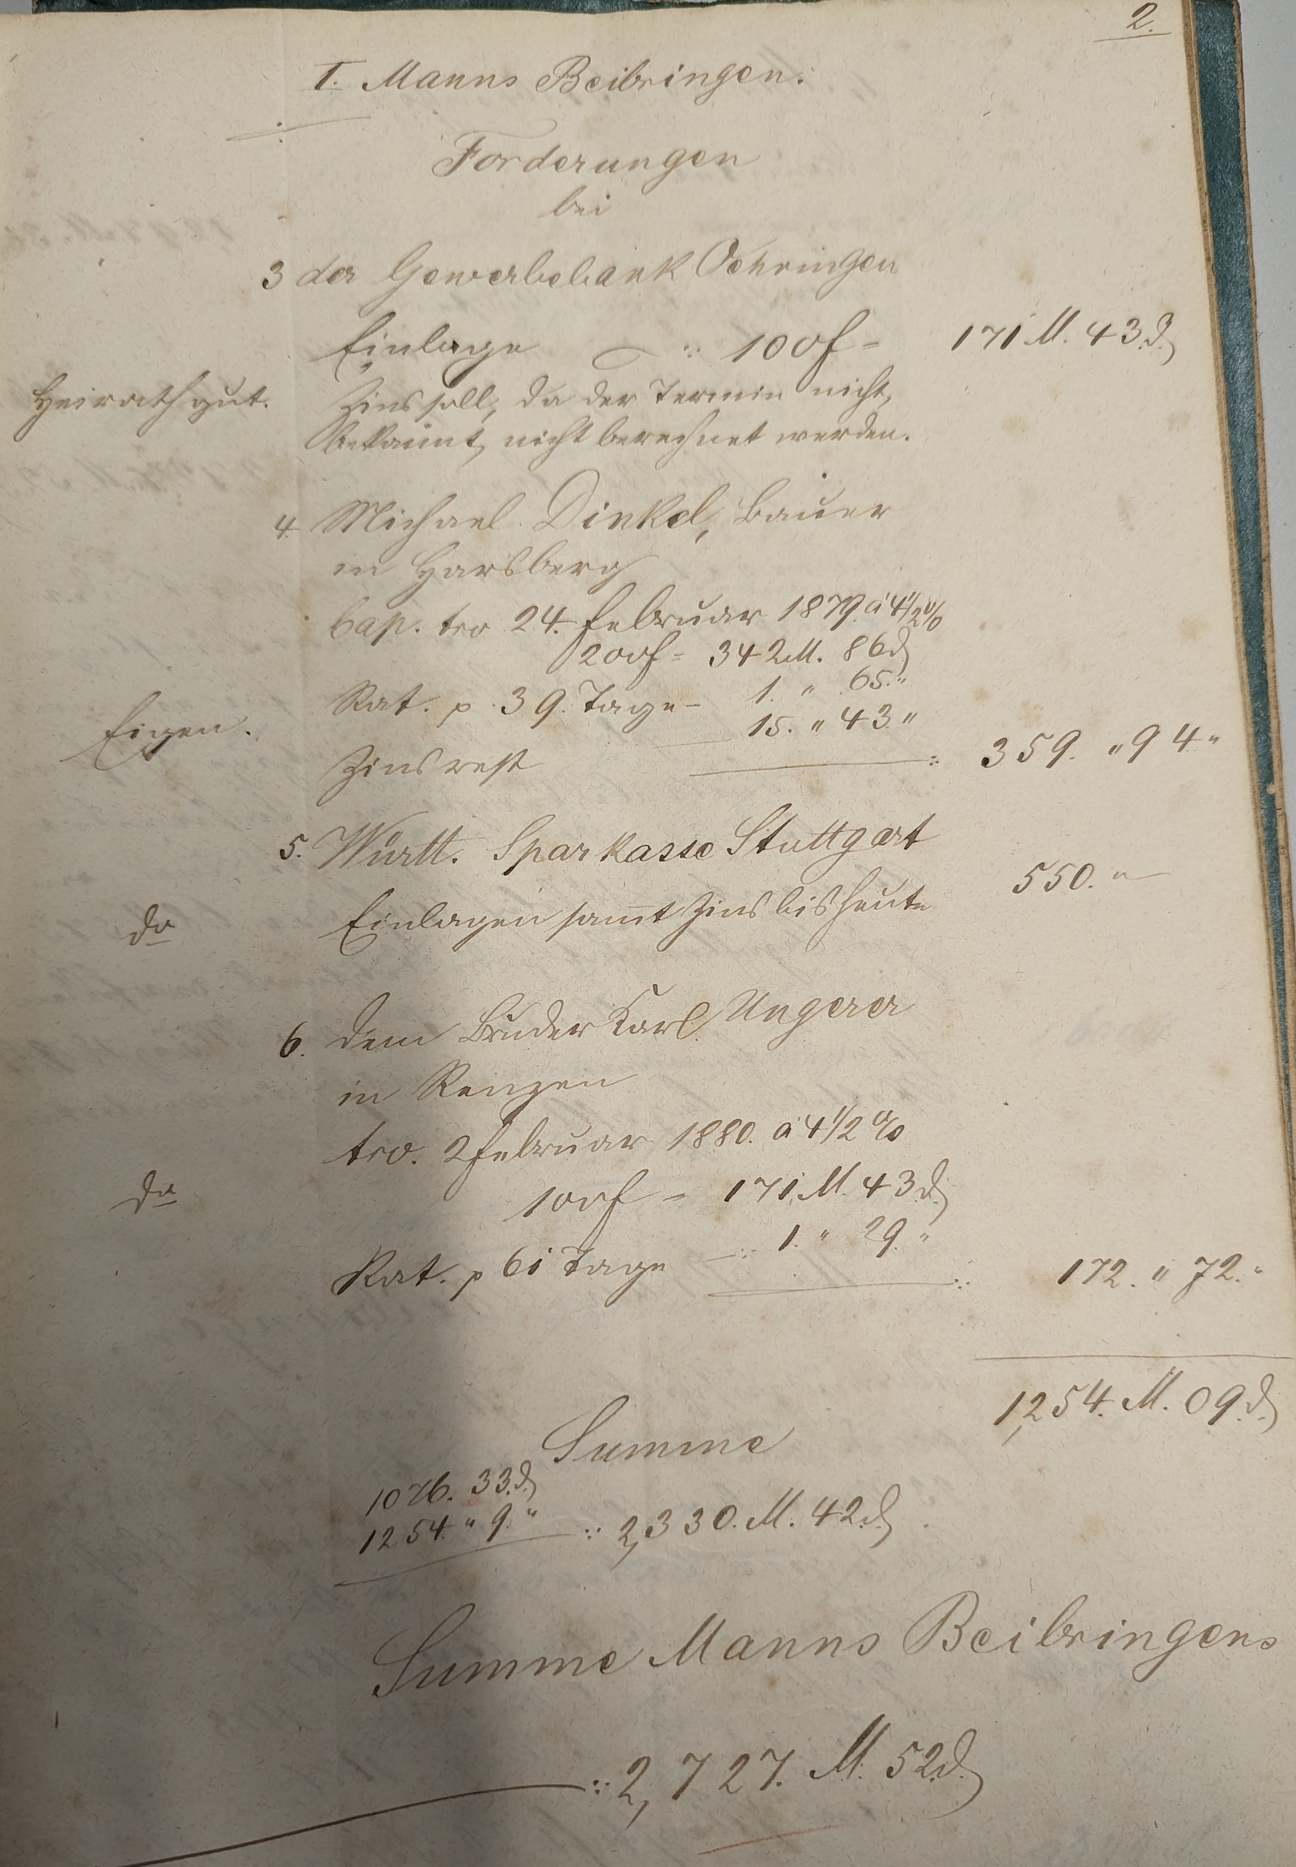 2.
I. Manns Beibringen.
Forderungen
bei
3 der Gewerbebank Oehringen
Einlage 100 f = 171 M. 43 d.
Heirathgut. Zins soll, da der Termin nicht
bekannt, nicht berechnet werden.
4. Michael Dinkel, Bauer
in Harsberg
Cap. tro 24. Februar 1879. à 4 1/2 %
200 f = 342 M. 86 d
Rat. p. 39. Tage - 1. " 65. "
Eigen. 15. " 43 "
Zinsrest 359. " 94 "
5. Württ. Sparkasse Stuttgart
Einlagen samt Zins bis heute 550. " —
do
6. dem Bruder Karl Ungerer
in Renzen
tro. 2 Februar 1880. à 4 1/2 %
do 100 f = 171 M. 43 d.
Rat. p 61 Tage 1. " 29. "
172. " 72. "
1,254. M. 09 d.
Summe
1076. 33 d.
1254. " 9. " 2,330. M. 42 d.
Summe Manns Beibringens
2,727. M. 52 d.